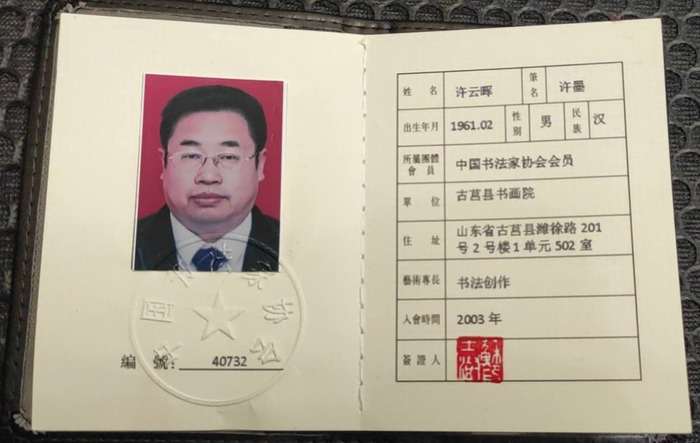 编 號: 40732
姓 名 许云晖 筆名 许墨
出生年月 1961.02 性别 男 民族 汉
所屬團體會員 中国书法家协会会员
單 位 古莒县书画院
住 址 山东省古莒县潍徐路 201
号 2 号楼 1 单元 502 室
藝術專長 书法创作
入會時間 2003 年
簽證人